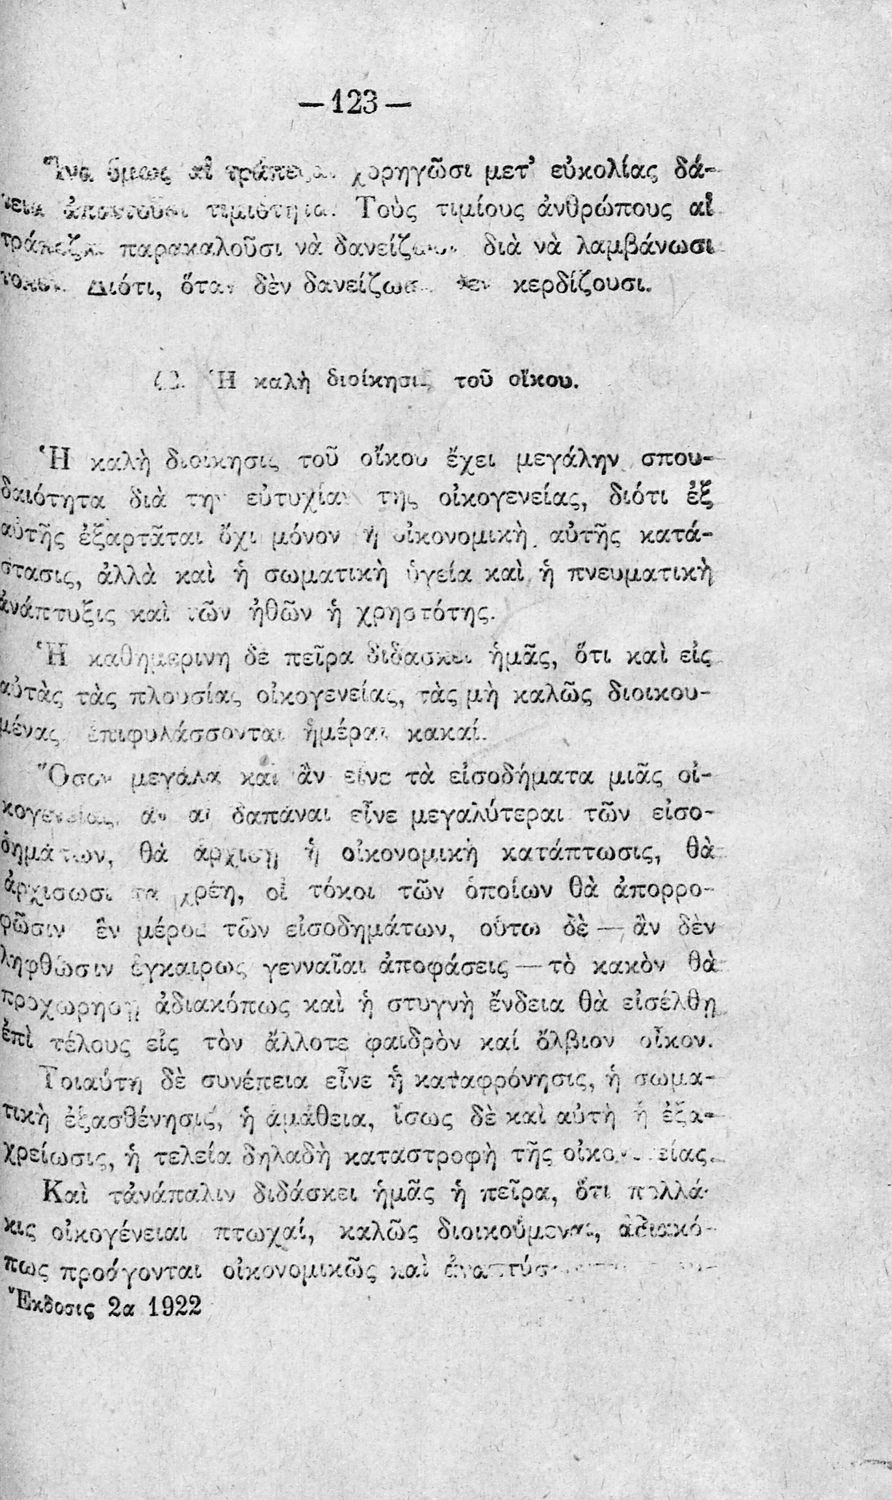 —123—
Ἵνα ὅμως αἱ τράπεζαι χορηγῶσι μετ' εὐκολίας δά-
νεια ἀπαιτοῦσι τιμιότητα. Τοὺς τιμίους ἀνθρώπους αἱ
τράπεζαι παρακαλοῦσι νὰ δανείζωσι διὰ νὰ λαμβάνωσι
τόκον. Διότι, ὅταν δὲν δανείζωσι δὲν κερδίζουσι.
Ἡ καλὴ διοίκησις τοῦ οἴκου.
Ἡ καλὴ διοίκησις τοῦ οἴκου ἔχει μεγάλην σπου-
δαιότητα διὰ τὴν εὐτυχίαν τῆς οἰκογενείας, διότι ἐξ
αὐτῆς ἐξαρτᾶται ὄχι μόνον ἡ οἰκονομικὴ αὐτῆς κατά-
στασις, ἀλλὰ καὶ ἡ σωματικὴ ὑγεία καὶ ἡ πνευματικὴ
ἀνάπτυξις καὶ τῶν ἠθῶν ἡ χρηστότης.
Ἡ καθημερινὴ δὲ πεῖρα διδάσκει ἡμᾶς, ὅτι καὶ εἰς
αὐτὰς τὰς πλουσίας οἰκογενείας, τὰς μὴ καλῶς διοικου-
μένας ἐπιφυλάσσονται ἡμέραι κακαί.
Ὅσον μεγάλα καὶ ἂν εἶνε τὰ εἰσοδήματα μιᾶς οἰ-
κογενείας, ἂν αἱ δαπάναι εἶνε μεγαλύτεραι τῶν εἰσο-
δημάτων, θὰ ἀρχίσῃ ἡ οἰκονομικὴ κατάπτωσις, θὰ
ἀρχίσωσι τὰ χρέη, οἱ τόκοι τῶν ὁποίων θὰ ἀπορρο-
φῶσιν ἓν μέρος τῶν εἰσοδημάτων, οὕτω δὲ — ἂν δὲν
ληφθῶσιν ἐγκαίρως γενναῖαι ἀποφάσεις — τὸ κακὸν θὰ
προχωρήσῃ ἀδιακόπως καὶ ἡ στυγνὴ ἔνδεια θὰ εἰσέλθῃ
ἐπὶ τέλους εἰς τὸν ἄλλοτε φαιδρὸν καί ὄλβιον οἶκον.
Τοιαύτη δὲ συνέπεια εἶνε ἡ καταφρόνησις, ἡ σωμα-
τικὴ ἐξασθένησις, ἡ ἀμάθεια, ἴσως δὲ καὶ αὐτὴ ἡ ἐξα-
χρείωσις, ἡ τελεία δηλαδὴ καταστροφὴ τῆς οἰκογενείας.
Καὶ τἀνάπαλιν διδάσκει ἡμᾶς ἡ πεῖρα, ὅτι πολλά-
κις οἰκογένειαι πτωχαί, καλῶς διοικούμεναι, ἀδιακό-
πως προάγονται οἰκονομικῶς καὶ
Ἔκδοσις 2α 1922